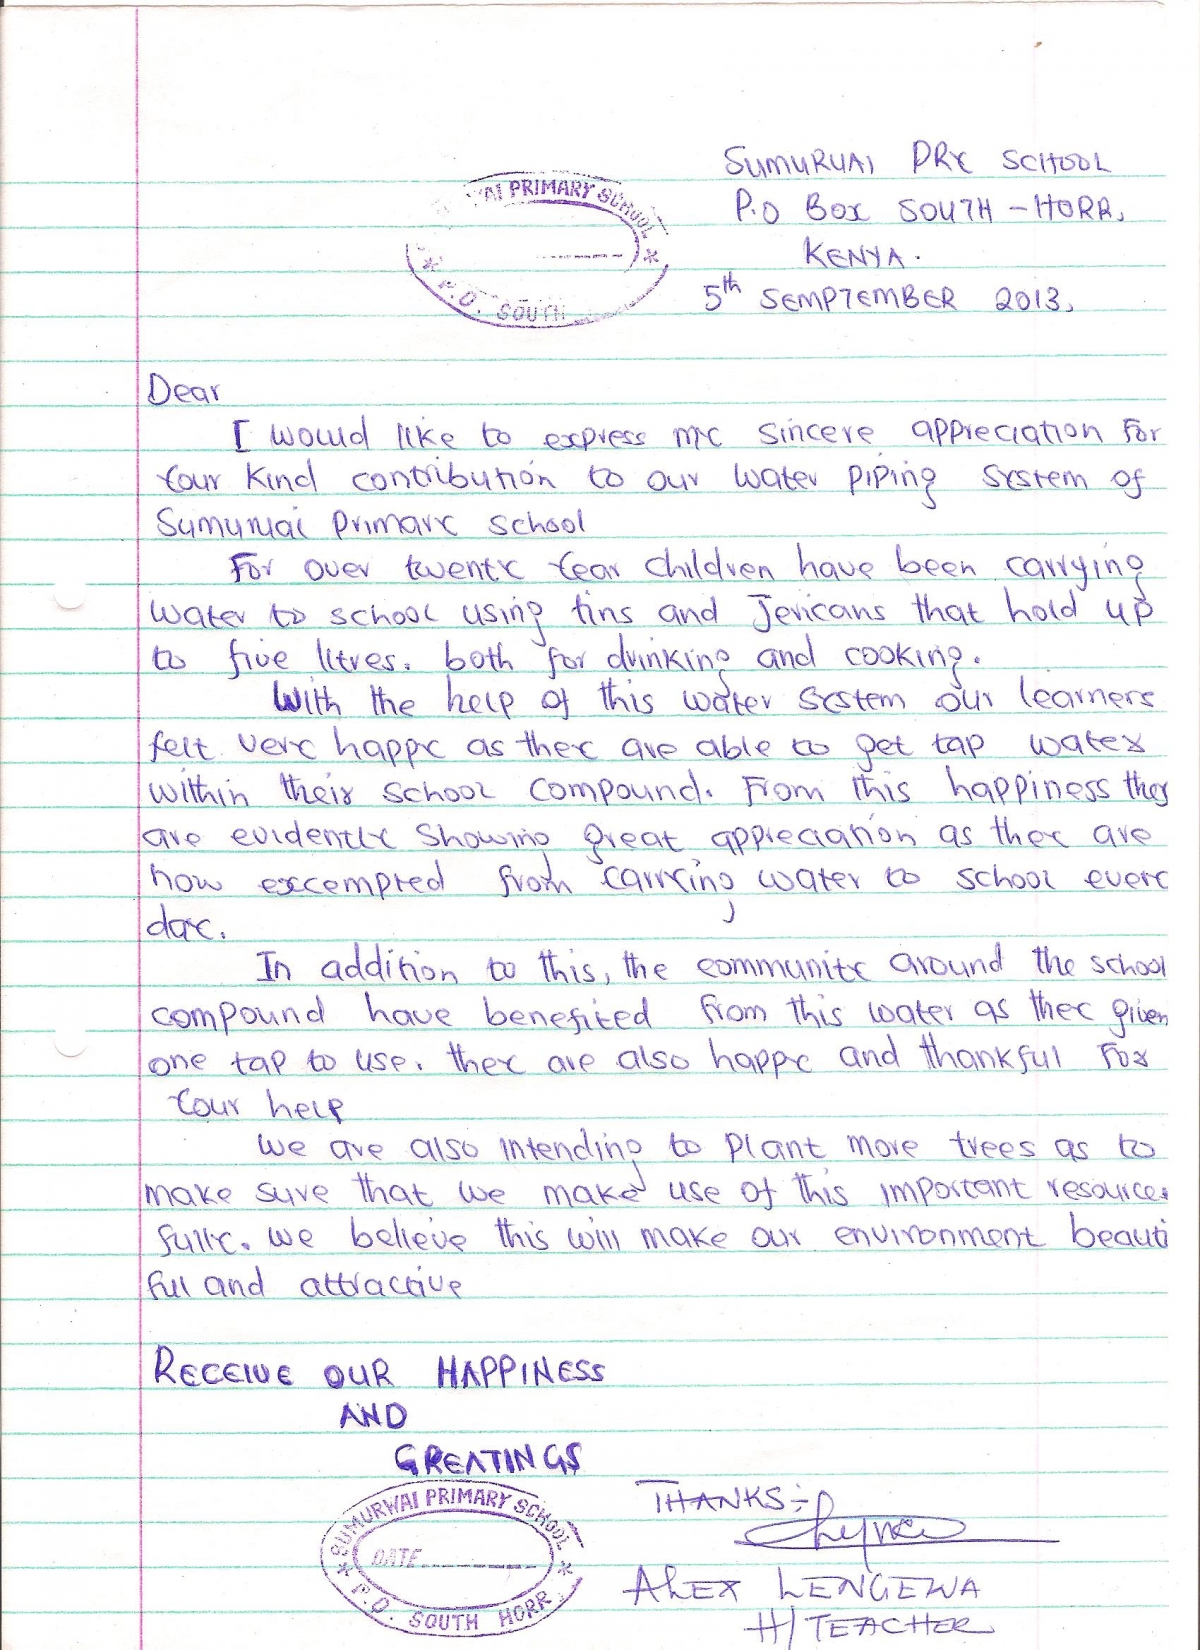 SUMURUAI PRY SCHOOL
P.O BOX SOUTH-HORR,
KENYA.
5th SEMPTEMBER 2013,
WAI PRIMARY SCHOOL
* P.O. SOUTH *
Dear
I would like to express my sincere appreciation for
your kind contribution to our water piping system of
Sumuruai primary school
For over twenty year children have been carrying
water to school using tins and Jericans that hold up
to five litres. both for drinking and cooking.
With the help of this water system our learners
felt very happy as they are able to get tap water
within their school compound. From this happiness they
are evidently showing great appreciation as they are
now excempted from carrying water to school every
day.
In addition to this, the community around the school
compound have benefited from this water as they given
one tap to use. they are also happy and thankful for
your help
We are also intending to plant more trees as to
make sure that we make use of this important resources
fully. we believe this will make our environment beauti
ful and attractive
RECEIVE OUR HAPPINESS
AND
GREATINGS
SUMURWAI PRIMARY SCHOOL
DATE
* P.O. SOUTH HORR *
THANKS:-
ALEX LENGEWA
H/TEACHER